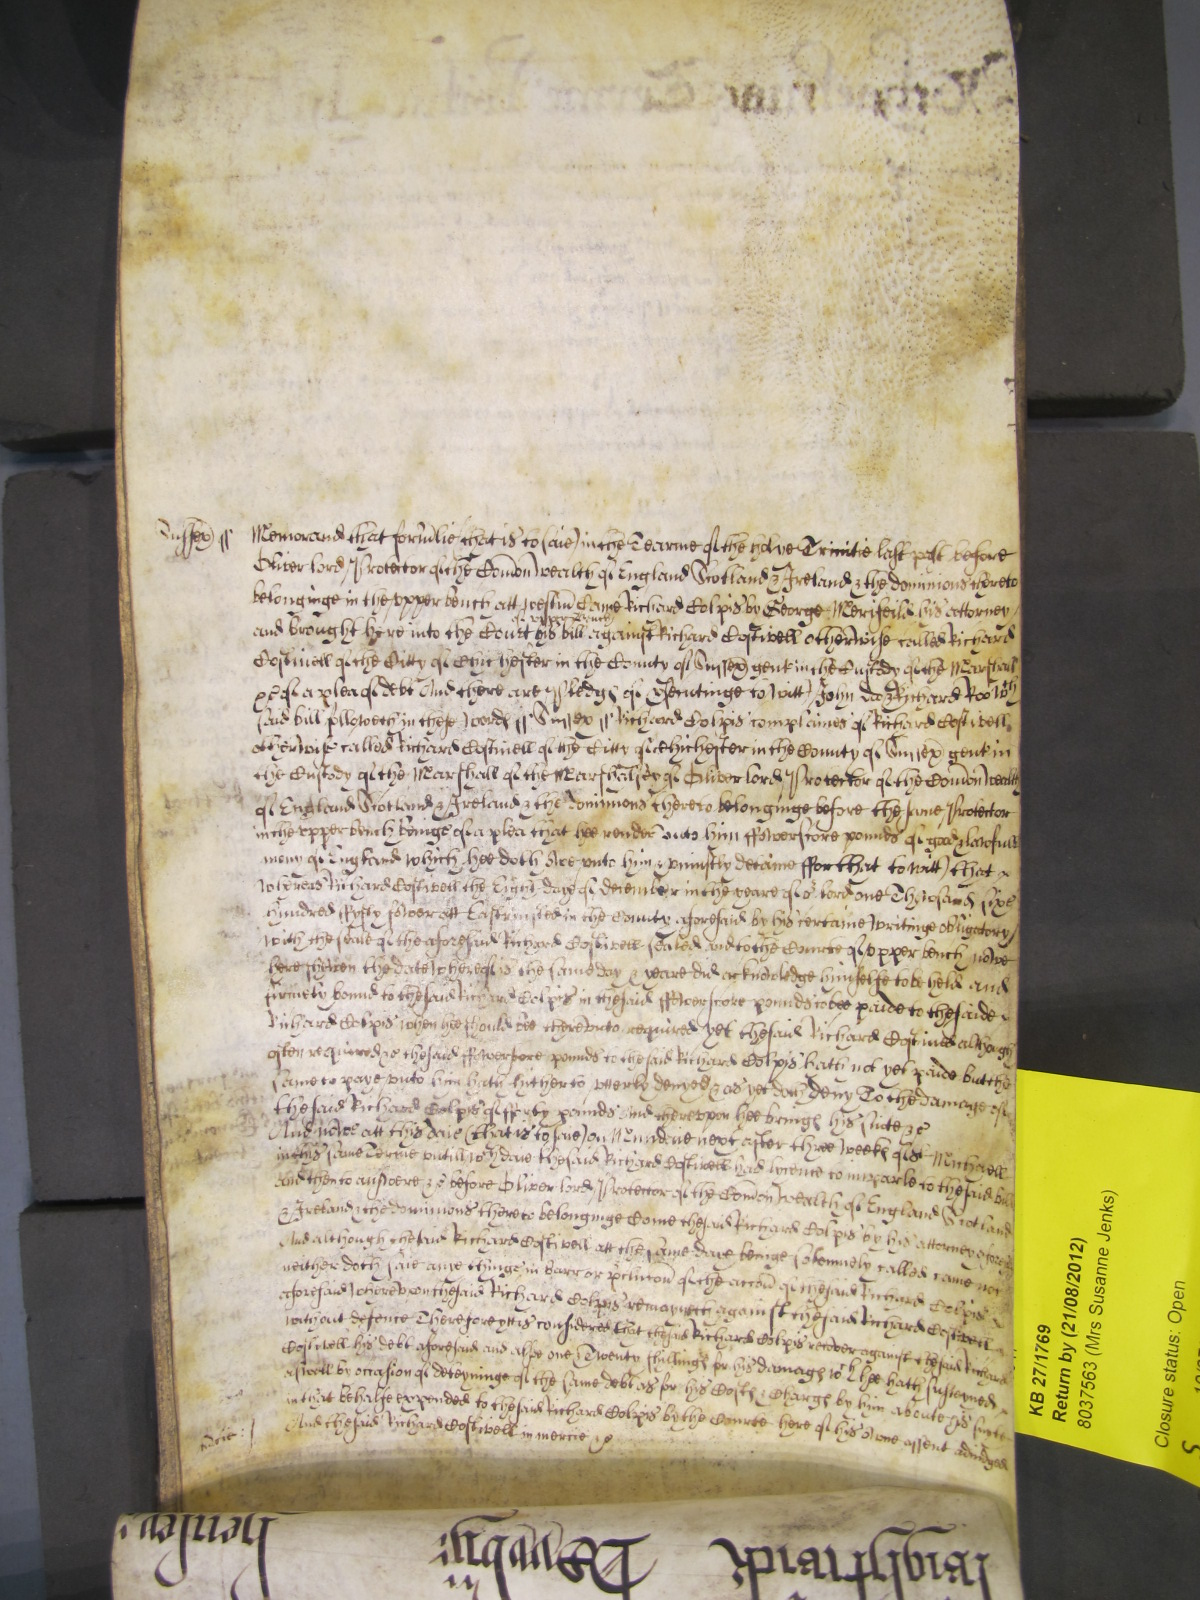 Sussex ss Memorand that formlie (that is to saie) in the Tearme of the holye Trinitie last past before
Oliver lord Protector of the Comon wealth of England Scotland & Ireland & the dominions thereto
belonginge in the upper bench att westm Came Richard Colpis by George Merifeild his attorney
of upper bench
and brought here into the Court his bill against Richard Costwell otherwise called Richard
Costwell of the Citty of Chichester in the County of Sussex gent in the Custody of the Marshall
&c of a plea of debt And there are Pledgs of psecutinge to witt John doe & Richard Roo wch
said bill followeth in these words ss Sussex ss Richard Colpis complaines of Richard Costwell
otherwise called Richard Costwell of the Citty of Chichester in the County of Sussex gent in
the Custody of the Marshall of the Marshalsey of Oliver lord Protector of the Comon wealth
of England Scotland & Ireland & the dominions thereto belonginge before the same Protector
in the upper bench beinge of a plea that hee render unto him ffowerscore pounds of good & lawfull
mony of England which hee doth owe unto him & uniustly detaine ffor that to witt) that
whereas Richard Costwell the Eight day of december in the yeare of or lord one Thousand sixe
hundred ffyfty fower att Eastgrinsted in the County aforesaid by his certaine writinge obligatory
with the seale of the aforesaid Richard Costwell sealed and to the Courte of upper bench nowe
here shewen the date whereof is the same day & yeare did acknowledge himselfe to be held and
firmely bound to the said Richard Colpis in the said ffowerscore pounds to bee paide to the saide
Richard Colpis when hee should bee thereunto required yet the said Richard Costwell although
often required &c the said ffowerscore pounds to the said Richard Colpis hath not yet paide but the
same to paye unto him hath hitherto utterly denyed & as yet doth deny To the damage of
the said Richard Colpis of fforty pounds And thereupon hee bringes his suite &c
And nowe att this daie (that is to saie) on Mundaie next after three weekes of St Michaell
in this same Terme untill wch daie the said Richard Costwell had lycence to imparle to the said bill
and then to answere &c before Oliver lord Protector of the Comon wealth of England Scotland
& Ireland & the dominions thereto belonginge Come the said Richard Colpis by his attorney aforesd
And although the said Richard Costwell att the same daye beinge solemnely called came not
neither doth saie anie thinge in barr or pclucon of the accon of the said Richard Colpis
aforesaid whereupon the said Richard Colpis remayneth against the said Richard Costwell
without defence Therefore ytt is considered that the said Richard Colpis recover against the said Richard
Costwell his debt aforesaid and alsoe one & Twenty shillings for his damages wch hee hath susteyned
aswell by occasion of deteyninge of the same debt as for his Costs & Charges by him aboute his suite
in that behalfe expended to the said Richard Colpis by the Courte here of his owne assent adiudged
And the said Richard Costwell in mercie &c
KB 27/1769
Return by (21/08/2012)
8037563 (Mrs Susanne Jenks)
Closure status: Open